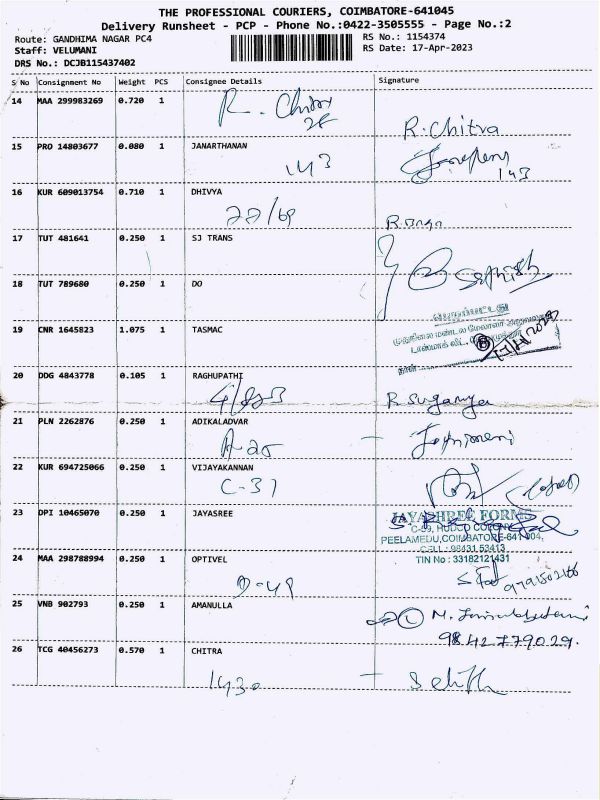 THE PROFESSIONAL COURIERS, COIMBATORE-641045
Delivery Runsheet - PCP - Phone No.:0422-3505555 - Page No.:2
Route: GANDHIMA NAGAR PC4
RS No.: 1154374
Staff: VELUMANI
RS Date: 17-Apr-2023
DRS No.: DCJB115437402
S No Consignment No Weight PCS Consignee Details Signature
14 MAA 299983269 0.720 1 R. Chitra
R. Chitra
15 PRO 14803677 0.080 1 JANARTHANAN
143
143
16 KUR 609013754 0.710 1 DHIVYA
22/69
17 TUT 481641 0.250 1 SJ TRANS
Sathish
18 TUT 789680 0.250 1 DO
19 CNR 1645823 1.075 1 TASMAC
20 DDG 4843778 0.105 1 RAGHUPATHI
R Suganya
21 PLN 2262876 0.250 1 ADIKALADVAR
A-20
22 KUR 694725066 0.250 1 VIJAYAKANNAN
C-37
23 DPI 10465070 0.250 1 JAYASREE
JAYASHREE FORMS
C-39, HUDCO COLONY
PEELAMEDU, COIMBATORE-641 004,
CELL : 98431 53413
TIN No : 33182121431
24 MAA 298788994 0.250 1 OPTIVEL
D-49
9791502166
25 VNB 902793 0.250 1 AMANULLA
9842779029.
26 TCG 40456273 0.570 1 CHITRA
1430